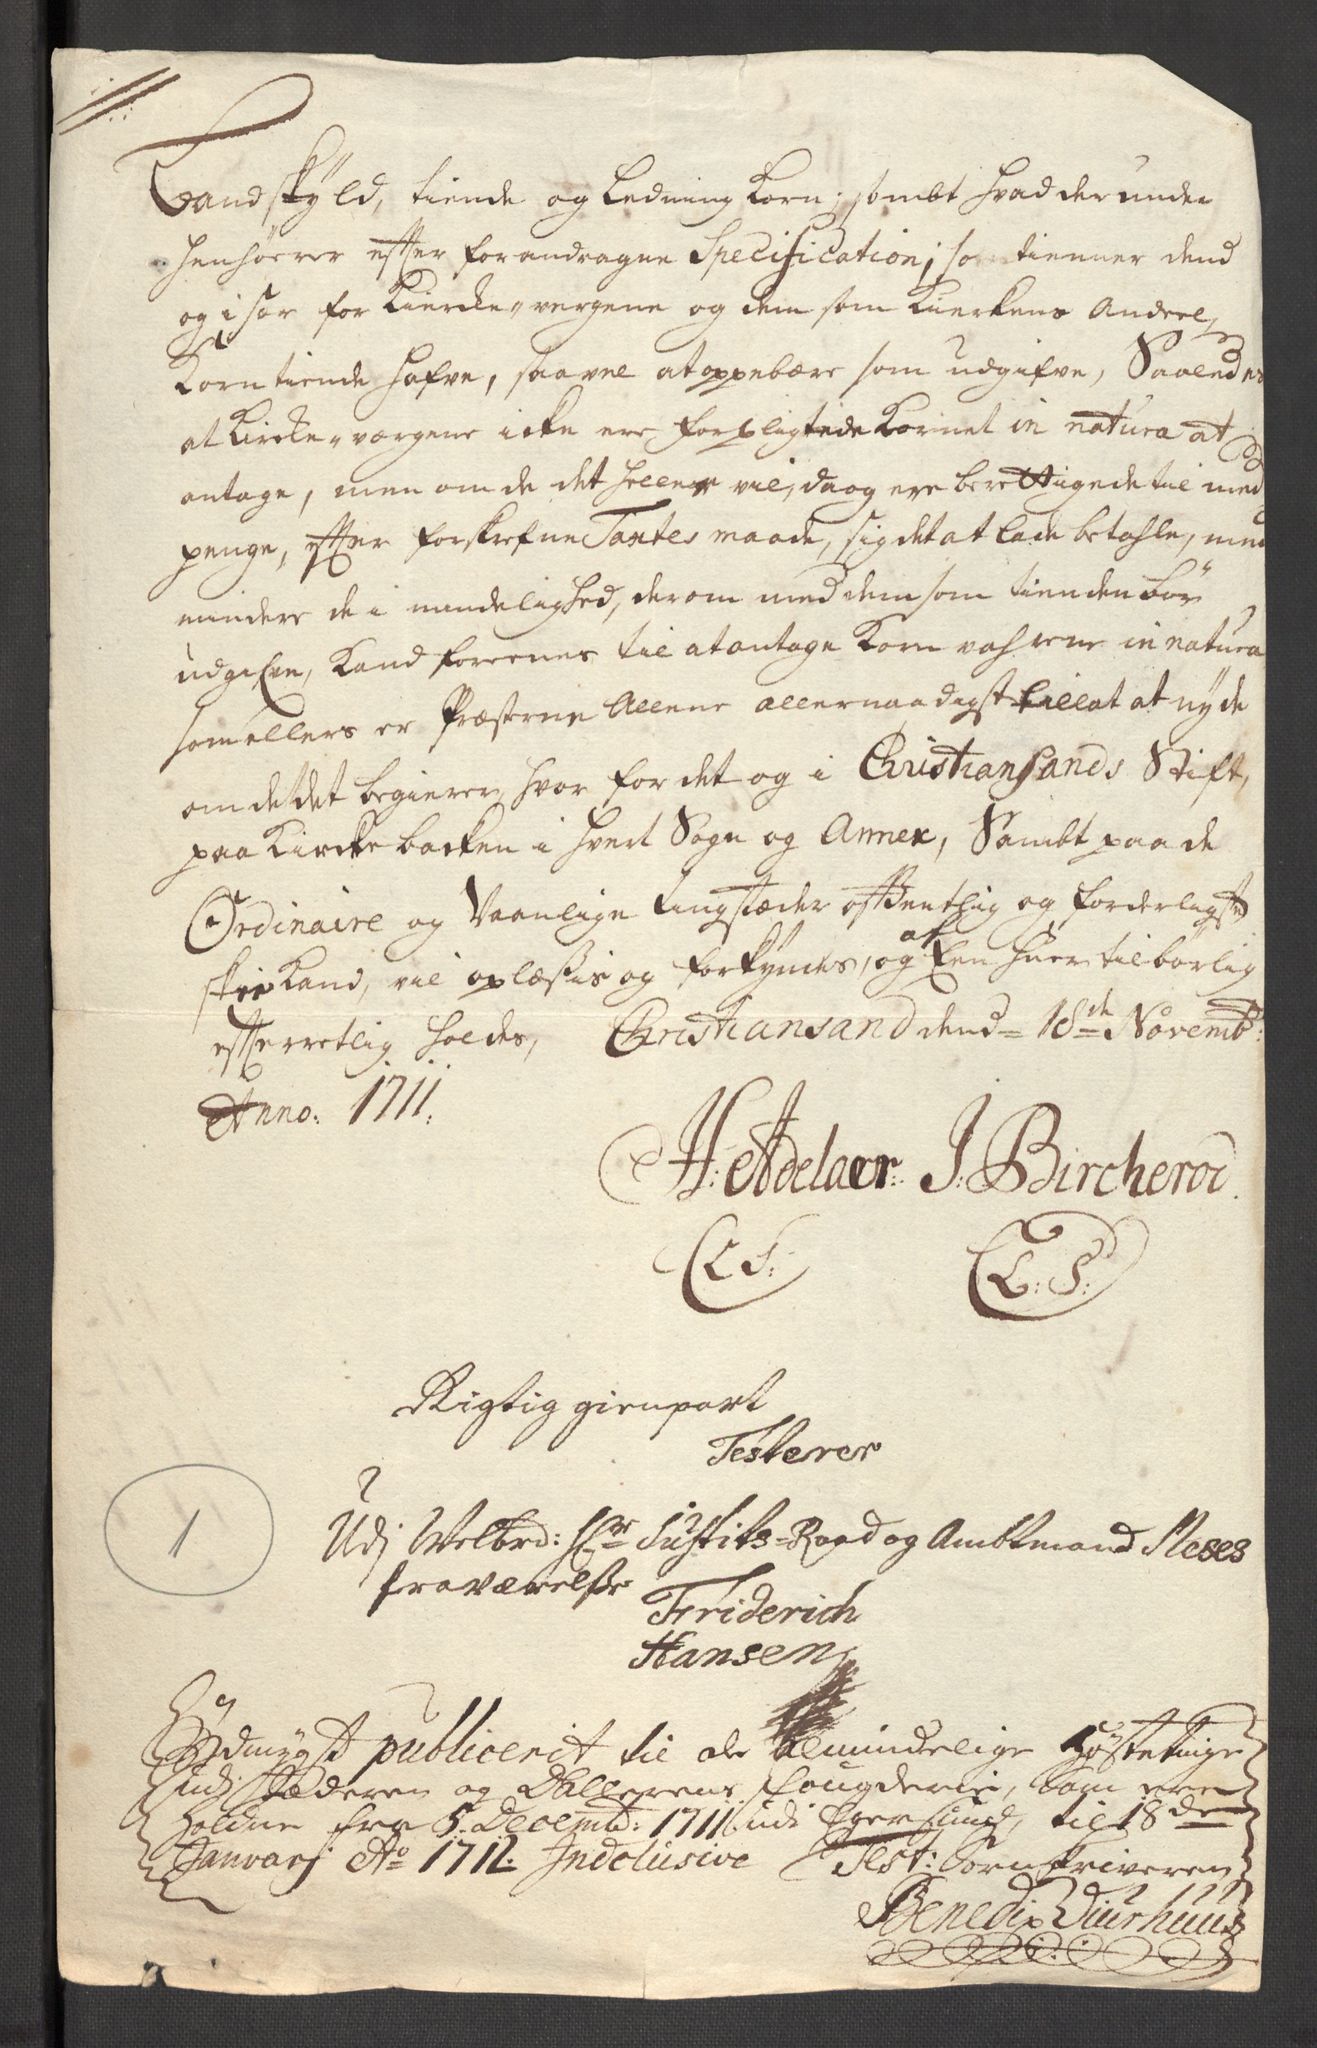 Landskyld, tiende og Ledning Korn; sambt hvad der under
henhörer efter forandragne Specification; som tienner dend
og i sær for Kierche-vergene og dem som Kierkens Andeel,
Korntiende hafve, saavel at oppebære som udgifve, Saaledes
at Kircke-vargene icke ere forpligtede Kornet in natura at
antage, men om de det heller vil, da og ere berettigede til med
penge, efter forskrefne Taxtes maade, sig det at lade betahle, med
mindre de i mindelighed, derom med dem som tienden bör
udgifve, Kand foreenes til at antage Korn vahrene in natura
som ellers er Præsterne Allene allernaadigst tillat at nyde
om de det begierer, hvor for det og i Christiansands Stift,
paa Kircke backen i hvert Sogn og Annex, Sambt paa de
Ordinaire og Vaanlige tingstæder offentlig og forderligst
skee Kand, vil oplæsis og forkyndes, og af Een huer tilbörlig
efterretlig holdes, Christiansand dend 18de Novemb:
Anno: 1711.
H: Adelaer. J: Bircherod.
L S: L: S:
Rigtig gienpart
Testerer
Udj Welbrd: Hr Justits-Raad og Ambtmand Neses
fraværelse
Friderich
Hansen
1
Ydmygst publicerit til de almindelige Höstetinge
udj Jæderen og Dallerens fougderie, som ere
holdne fra 5. Decembr: 1711 udi Egersund, til 18 den
Januarj Ao 1712. Indclusive Test: Sornskriveren
Benedix Diurhuus